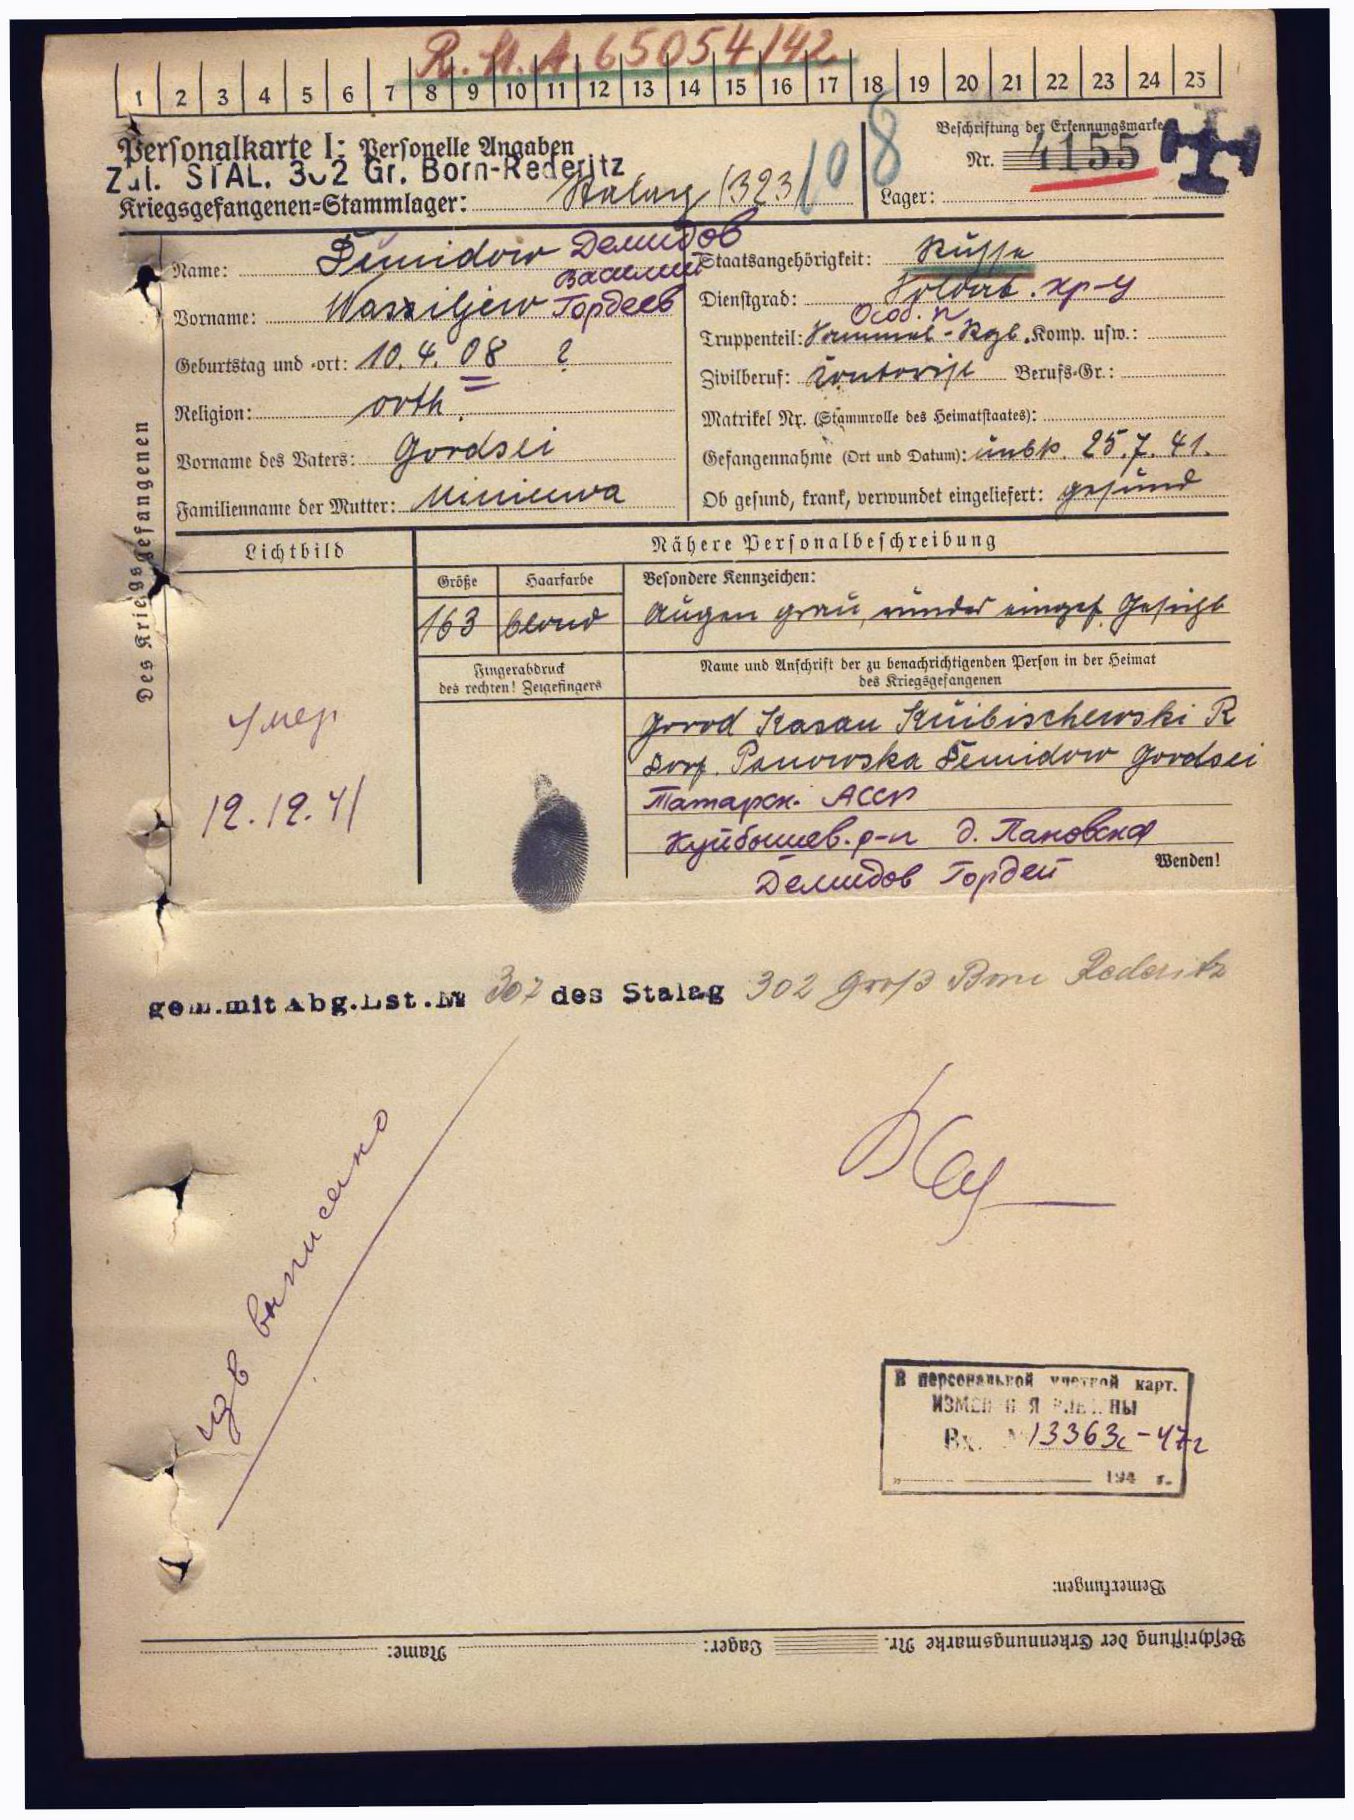 R. St. A. 65054/42
1 2 3 4 5 6 7 8 9 10 11 12 13 14 15 16 17 18 19 20 21 22 23 24 25
Personalkarte I: Personelle Angaben
Zul. STAL. 302 Gr. Born-Rederitz
Kriegsgefangenen-Stammlager: Stalag (323)
108
Beschriftung der Erkennungsmarke
Nr. 4155
Lager:
Des Kriegsgefangenen
Name: Demidow Демидов
Василий
Vorname: Wassiljew Гордеев
Geburtstag und -ort: 10. 4. 08 ?
Religion: orth.
Vorname des Vaters: Gordsei
Familienname der Mutter:
Staatsangehörigkeit: Russe
Dienstgrad: Soldat. кр-ц
Особ. п
Truppenteil: Sammel-Rgt. Komp. usw.:
Zivilberuf: Kontorist Berufs-Gr.:
Matrikel Nr. (Stammrolle des Heimatstaates):
Gefangennahme (Ort und Datum): unbk. 25. 7. 41.
Ob gesund, krank, verwundet eingeliefert: gesund
Lichtbild
Nähere Personalbeschreibung
Größe
Haarfarbe
Besondere Kennzeichen:
163
blond
Augen grau, rundes eingef. Gesicht
Fingerabdruck
des rechten! Zeigefingers
Name und Anschrift der zu benachrichtigenden Person in der Heimat
des Kriegsgefangenen
Gorod Kasan Kuibischewski R
Dorf. Panowska Demidow Gordsei
Татарск. АССР
Куйбышев. р-н д. Пановска
Демидов Гордей
Wenden!
Умер
12.12.41
gem. mit Abg. Lst. № 307 des Stalag 302 Groß Born Rederitz
изв выписано
В персональной учетной карт.
ИЗМЕНЕНИЯ ВНЕСЕНЫ
Вх. № 13363с-47г
„ 194 г.
Bemerkungen:
Beschriftung der Erkennungsmarke Nr. Lager: Name: